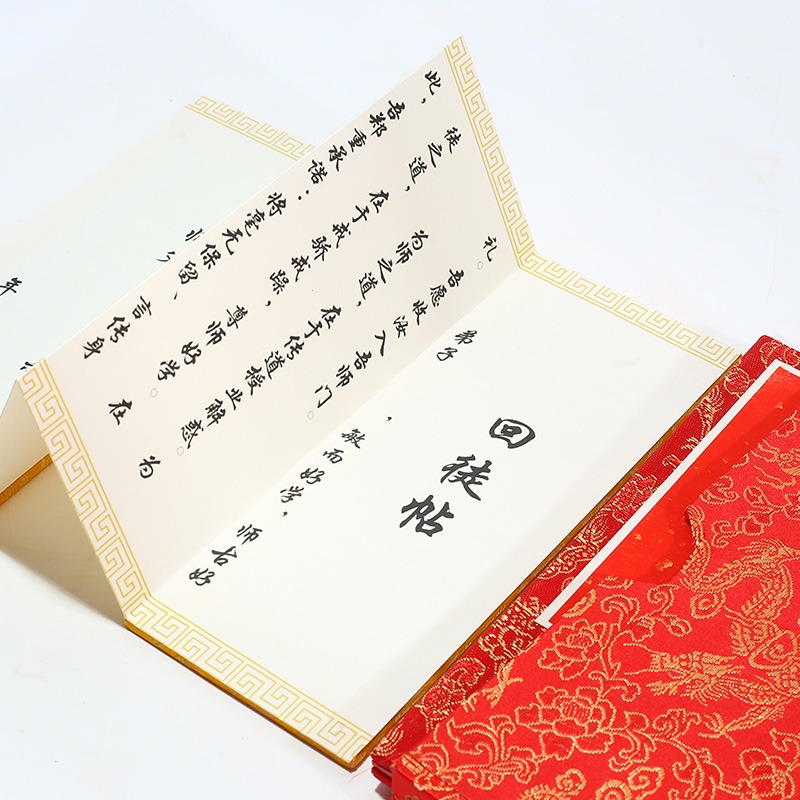 回徒帖
弟子 ，敏而好学，师古好
礼。
吾愿收汝入吾师门。
为师之道，在于传道授业解惑。为
徒之道，在于戒骄戒躁，尊师好学。在
此，吾郑重承诺：将毫无保留、言传身
年